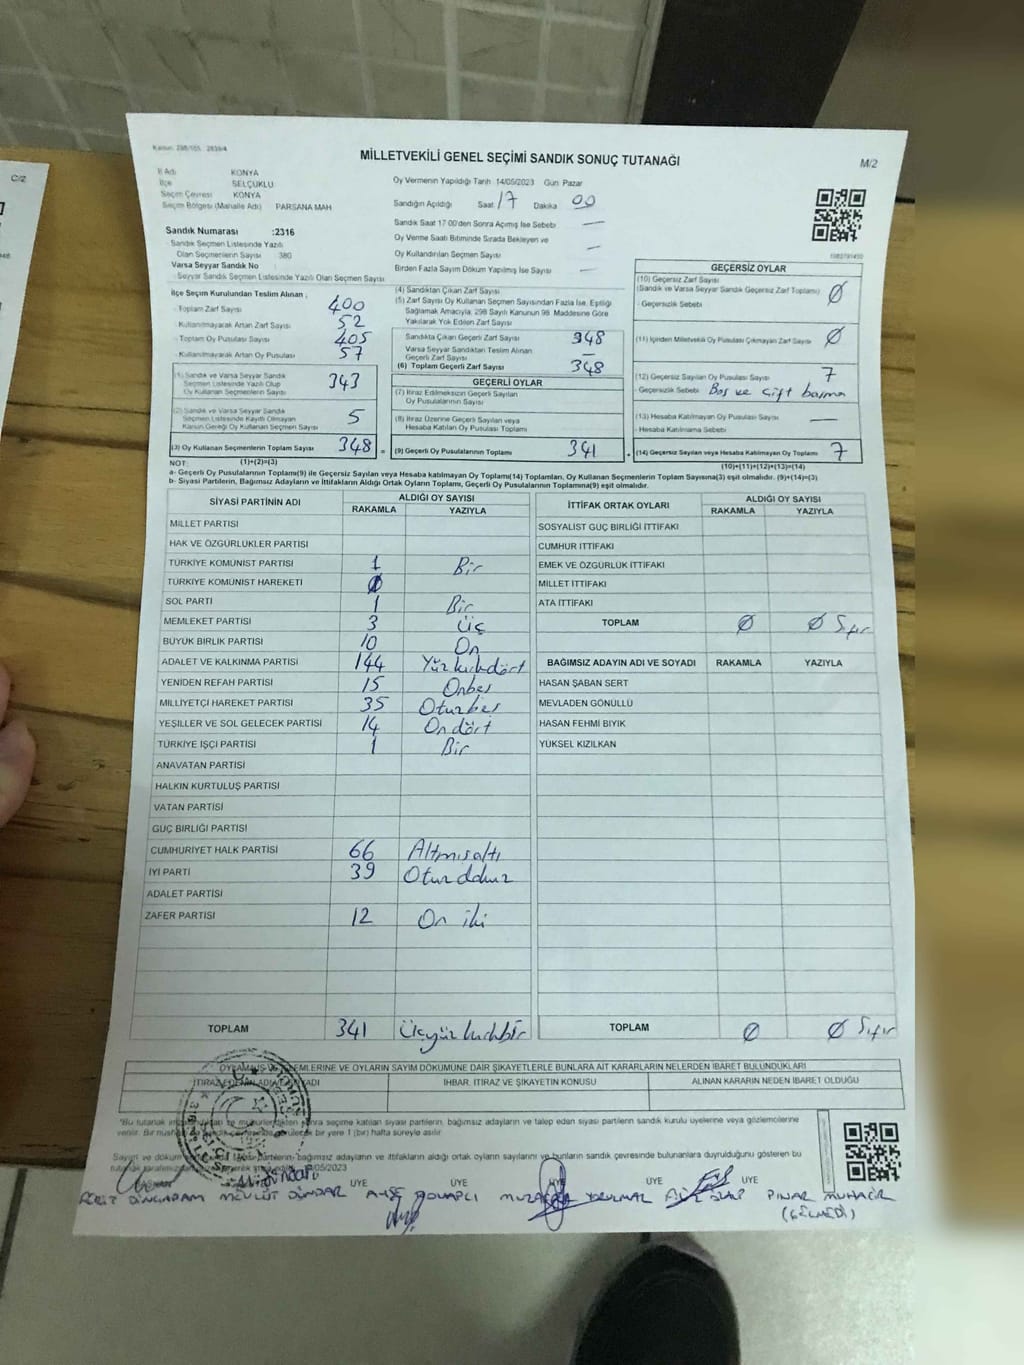 C/2
Kanun: 298/105
MİLLETVEKİLİ GENEL SEÇİMİ SANDIK SONUÇ TUTANAĞI
M/2
İl Adı KONYA
İlçe SELÇUKLU
Seçim Çevresi KONYA
Seçim Bölgesi (Mahalle Adı) PARSANA MAH
Oy Vermenin Yapıldığı Tarih 14/05/2023 Gün Pazar
Sandığın Açıldığı Saat 17 Dakika 00
Sandık Saat 17:00'den Sonra Açımış İse Sebebi —
Oy Verme Saati Bitiminde Sırada Bekleyen ve
Oy Kullandırılan Seçmen Sayısı —
Birden Fazla Sayım Döküm Yapılmış İse Sayısı —
Sandık Numarası :2316
Sandık Seçmen Listesinde Yazılı
Olan Seçmenlerin Sayısı 380
Varsa Seyyar Sandık No :
Seyyar Sandık Seçmen Listesinde Yazılı Olan Seçmen Sayısı
İlçe Seçim Kurulundan Teslim Alınan ;
Toplam Zarf Sayısı 400
Kullanılmayarak Artan Zarf Sayısı 52
Toplam Oy Pusulası Sayısı 405
Kullanılmayarak Artan Oy Pusulası 57
(1) Sandık ve Varsa Seyyar Sandık
Seçmen Listesinde Yazılı Olup
Oy Kullanan Seçmen Sayısı 343
(2) Sandık ve Varsa Seyyar Sandık
Seçmen Listesinde Kayıtlı Olmayan
Kanun Gereği Oy Kullanan Seçmen Sayısı 5
(3) Oy Kullanan Seçmenlerin Toplam Sayısı 348 =
(1)+(2)=(3)
(4) Sandıktan Çıkan Zarf Sayısı
(5) Zarf Sayısı Oy Kullanan Seçmen Sayısından Fazla İse, Eşitliği
Sağlamak Amacıyla, 298 Sayılı Kanunun 98. Maddesine Göre
Yakılarak Yok Edilen Zarf Sayısı
Sandıkta Çıkan Geçerli Zarf Sayısı 348
Varsa Seyyar Sandıktan Teslim Alınan
Geçerli Zarf Sayısı —
(6) Toplam Geçerli Zarf Sayısı 348
GEÇERLİ OYLAR
(7) İtiraz Edilmeksizin Geçerli Sayılan
Oy Pusulalarının Sayısı
(8) İtiraz Üzerine Geçerli Sayılan veya
Hesaba Katılan Oy Pusulası Toplamı
(9) Geçerli Oy Pusulalarının Toplamı 341 +
GEÇERSİZ OYLAR
(10) Geçersiz Zarf Sayısı
(Sandık ve Varsa Seyyar Sandık Geçersiz Zarf Toplamı) Ø
Geçersizlik Sebebi
(11) İçinden Milletvekili Oy Pusulası Çıkmayan Zarf Sayısı Ø
(12) Geçersiz Sayılan Oy Pusulası Sayısı 7
Geçersizlik Sebebi Boş ve çift basma
(13) Hesaba Katılmayan Oy Pusulası Sayısı —
Hesaba Katılmama Sebebi
(14) Geçersiz Sayılan veya Hesaba Katılmayan Oy Toplamı 7
(10)+(11)+(12)+(13)=(14)
NOT:
a- Geçerli Oy Pusulalarının Toplamı(9) ile Geçersiz Sayılan veya Hesaba katılmayan Oy Toplamı(14) Toplamları, Oy Kullanan Seçmenlerin Toplam Sayısına(3) eşit olmalıdır. (9)+(14)=(3)
b- Siyasi Partilerin, Bağımsız Adayların ve İttifakların Aldığı Ortak Oyların Toplamı, Geçerli Oy Pusulalarının Toplamına(9) eşit olmalıdır.
SİYASİ PARTİNİN ADI ALDIĞI OY SAYISI
RAKAMLA YAZIYLA
MİLLET PARTİSİ
HAK VE ÖZGÜRLÜKLER PARTİSİ
TÜRKİYE KOMÜNİST PARTİSİ 1 Bir
TÜRKİYE KOMÜNİST HAREKETİ Ø
SOL PARTİ 1 Bir
MEMLEKET PARTİSİ 3 Üç
BÜYÜK BİRLİK PARTİSİ 10 On
ADALET VE KALKINMA PARTİSİ 144 Yüz kırkdört
YENİDEN REFAH PARTİSİ 15 Onbeş
MİLLİYETÇİ HAREKET PARTİSİ 35 Oturbeş
YEŞİLLER VE SOL GELECEK PARTİSİ 14 On dört
TÜRKİYE İŞÇİ PARTİSİ 1 Bir
ANAVATAN PARTİSİ
HALKIN KURTULUŞ PARTİSİ
VATAN PARTİSİ
GÜÇ BİRLİĞİ PARTİSİ
CUMHURİYET HALK PARTİSİ 66 Altmışaltı
İYİ PARTİ 39 Otuz dokuz
ADALET PARTİSİ
ZAFER PARTİSİ 12 On iki
TOPLAM 341 Üçyüz kırkbir
İTTİFAK ORTAK OYLARI ALDIĞI OY SAYISI
RAKAMLA YAZIYLA
SOSYALİST GÜÇ BİRLİĞİ İTTİFAKI
CUMHUR İTTİFAKI
EMEK VE ÖZGÜRLÜK İTTİFAKI
MİLLET İTTİFAKI
ATA İTTİFAKI
TOPLAM Ø Ø Sıfır
BAĞIMSIZ ADAYIN ADI VE SOYADI RAKAMLA YAZIYLA
HASAN ŞABAN SERT
MEVLADEN GÖNÜLLÜ
HASAN FEHMİ BIYIK
YÜKSEL KIZILKAN
TOPLAM Ø Ø Sıfır
OYLAMA İŞLEMLERİNE VE OYLARIN SAYIM DÖKÜMÜNE DAİR ŞİKAYETLERLE BUNLARA AİT KARARLARIN NELERDEN İBARET BULUNDUKLARI
İTİRAZ EDENİN ADI SOYADI İHBAR, İTİRAZ VE ŞİKAYETİN KONUSU ALINAN KARARIN NEDEN İBARET OLDUĞU
*Bu tutanak sonra seçime katılan siyasi partilerin, bağımsız adayların ve talep eden siyasi partilerin sandık kurulu üyelerine veya gözlemcilerine
verilir. Bir nüshası bir yere 1 (bir) hafta süreyle asılır
Sayım ve döküm partilerin, bağımsız adayların ve ittifakların aldığı ortak oyların sayılarını ve bunların sandık çevresinde bulunanlara duyrulduğunu gösteren bu
ÜYE ÜYE ÜYE ÜYE ÜYE
MEVLÜT DİNDAR AYŞE YORULMAZ PINAR MUHACİR
(GELMEDİ)